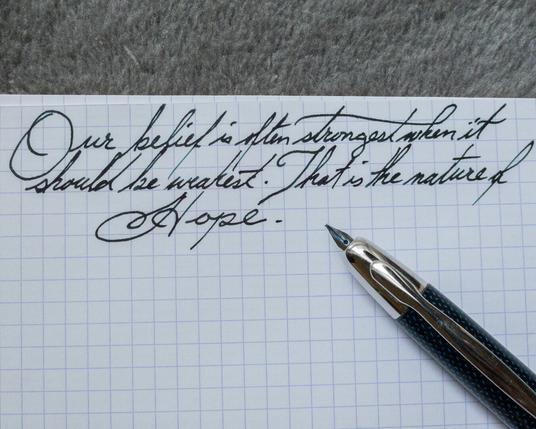 Our belief is often strongest when it
should be weakest. That is the nature of
Hope.